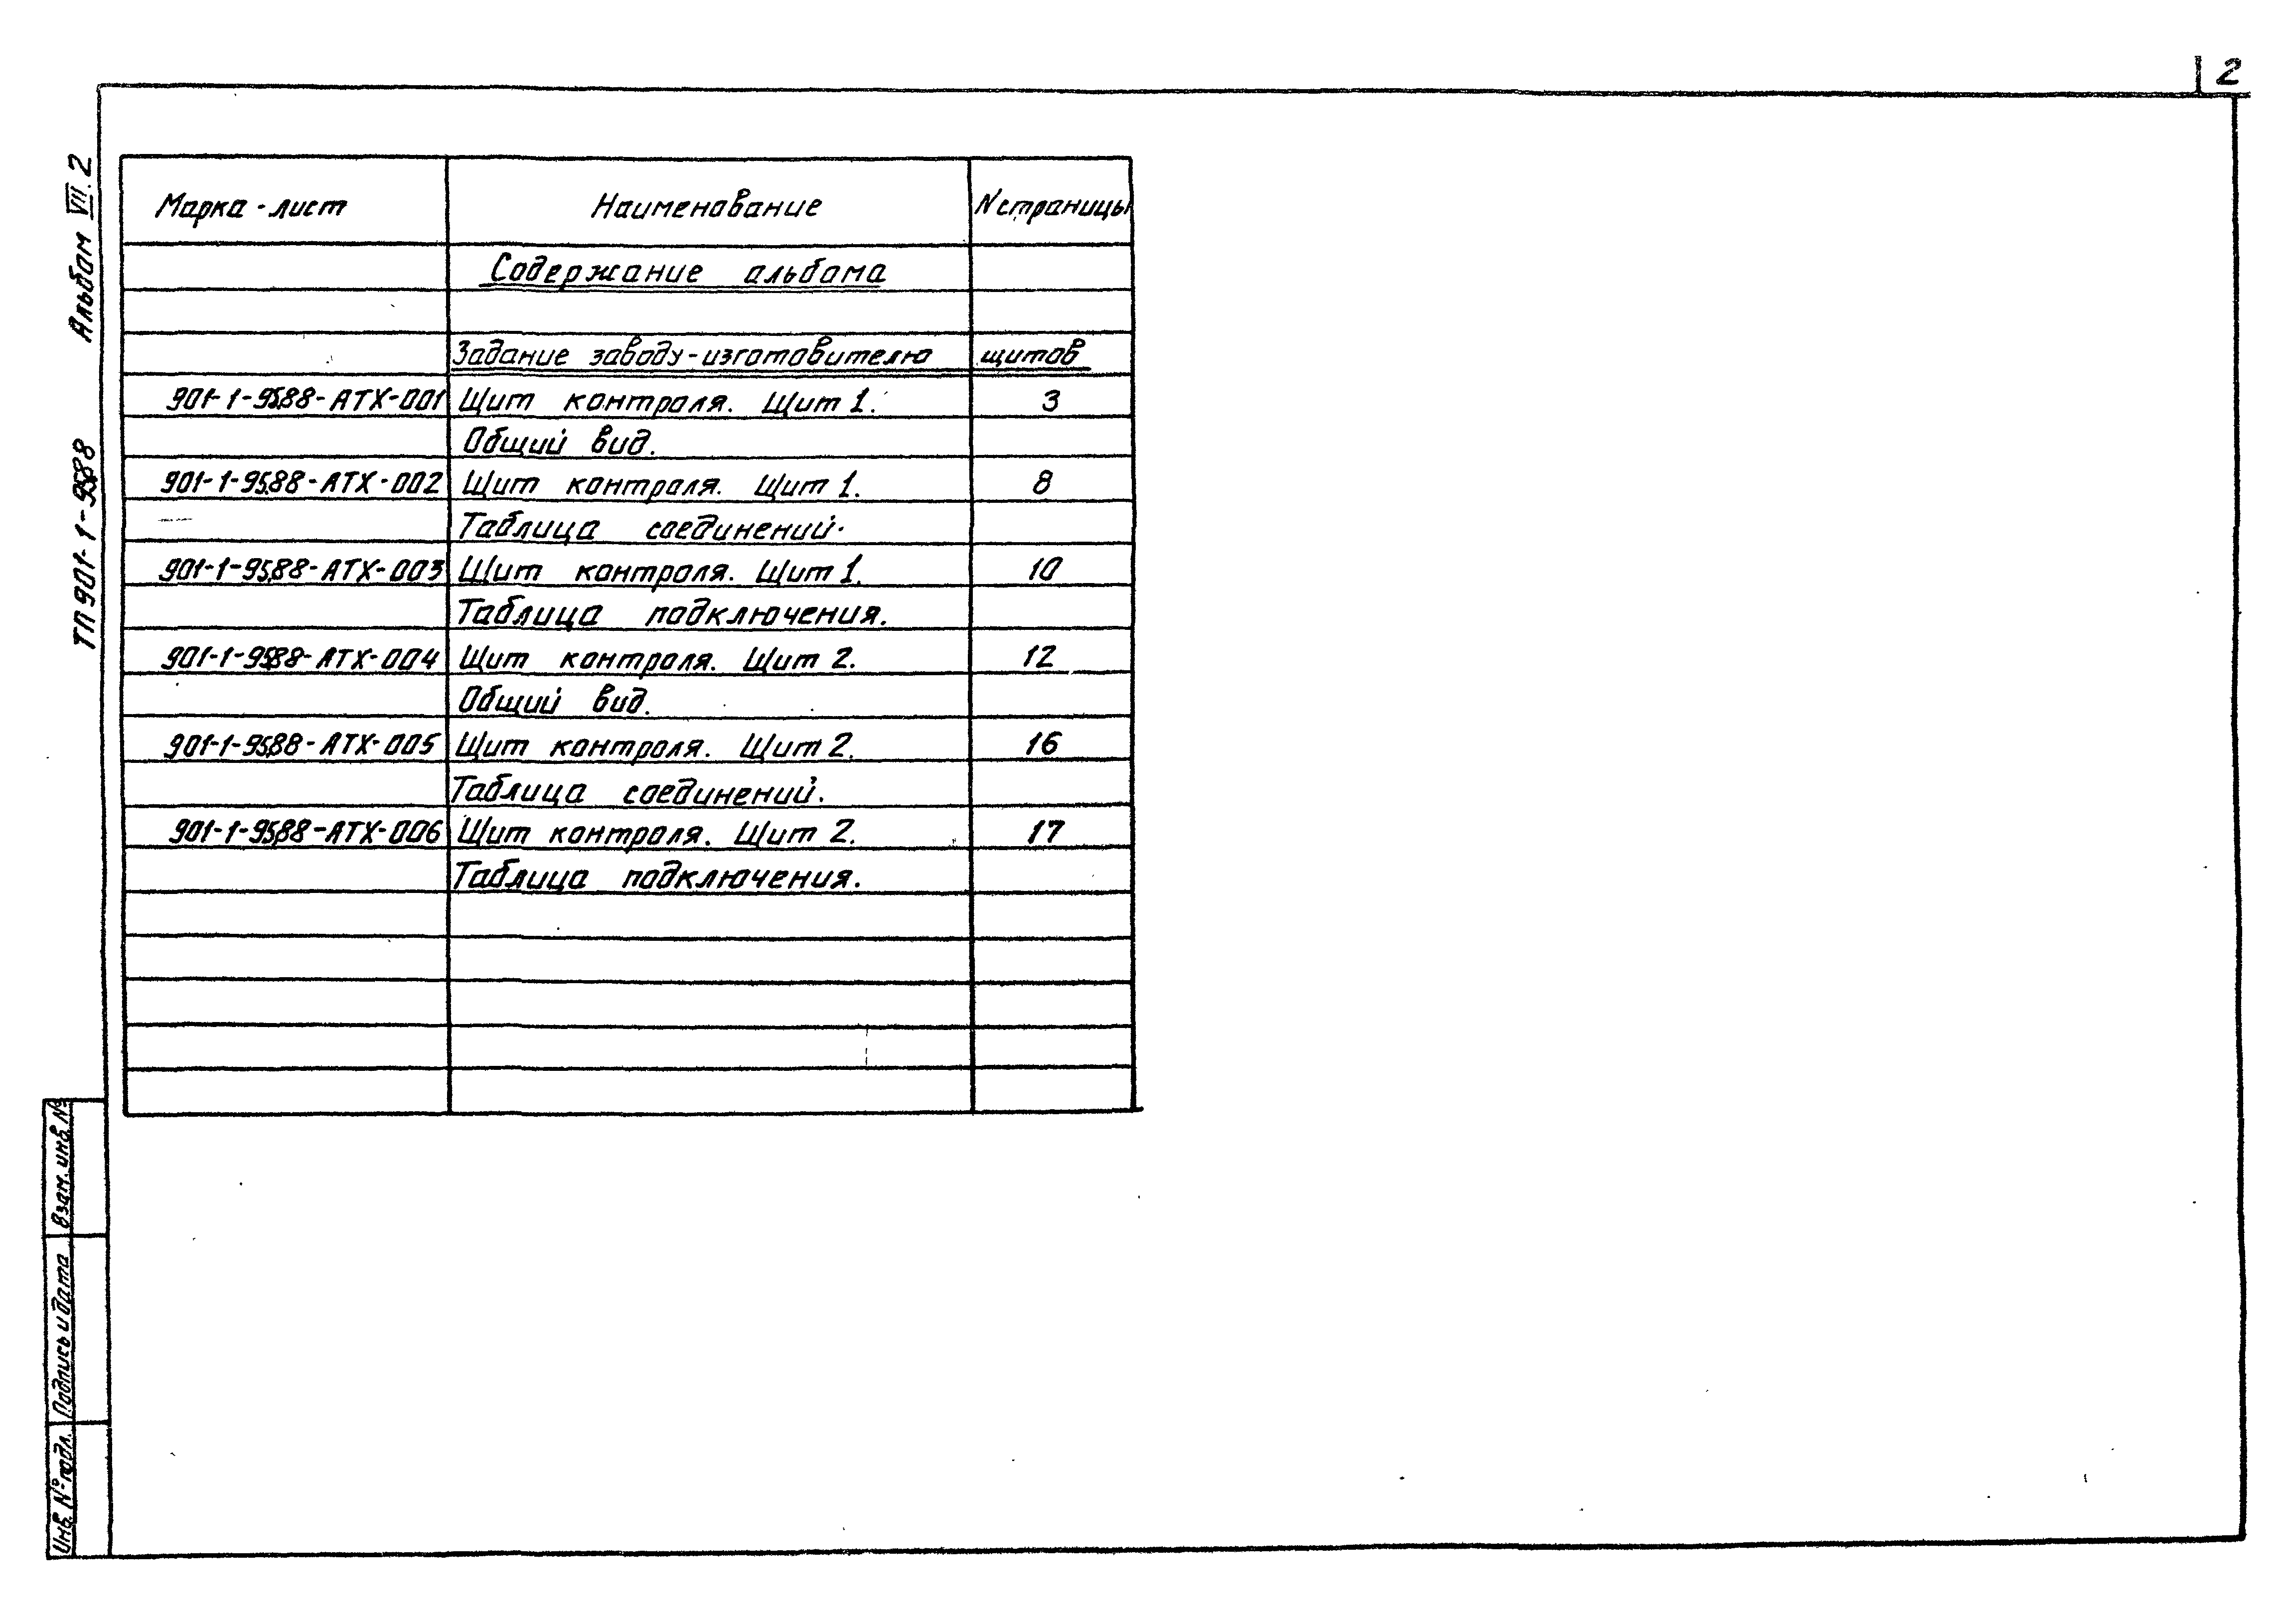 2
Альбом VII.2
ТП 901-1-95.88
Марка-лист Наименование N страницы
Содержание альбома
Задание заводу-изготовителю щитов
901-1-95.88-АТХ-001 Щит контроля. Щит 1. 3
Общий вид.
901-1-95.88-АТХ-002 Щит контроля. Щит 1. 8
Таблица соединений.
901-1-95.88-АТХ-003 Щит контроля. Щит 1. 10
Таблица подключения.
901-1-95.88-АТХ-004 Щит контроля. Щит 2. 12
Общий вид.
901-1-95.88-АТХ-005 Щит контроля. Щит 2. 16
Таблица соединений.
901-1-95.88-АТХ-006 Щит контроля. Щит 2. 17
Таблица подключения.
Взам. инв. №
Подпись и дата
Инв. № подл.